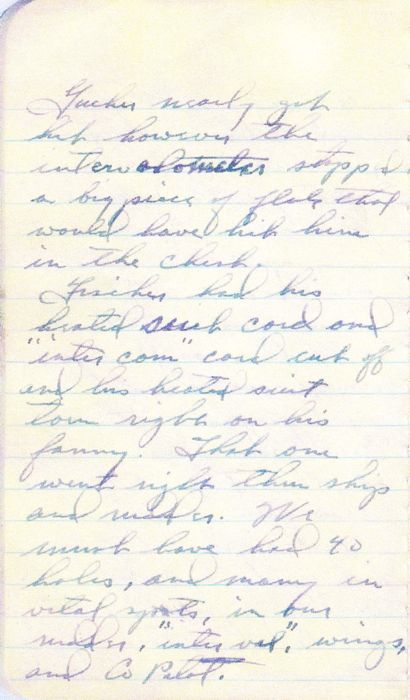 nearly got
hit however the
intervolometer stopped
a big piece of flak that
would have hit him
in the chest.
Fischer had his
heated suit cord and
"inter com" cord cut off
and his heated suit
torn right on his
fanny. That one
went right thru ship
and
We
must have had 40
holes, and many in
vital spots, in our
wings,
and Co Pilot.